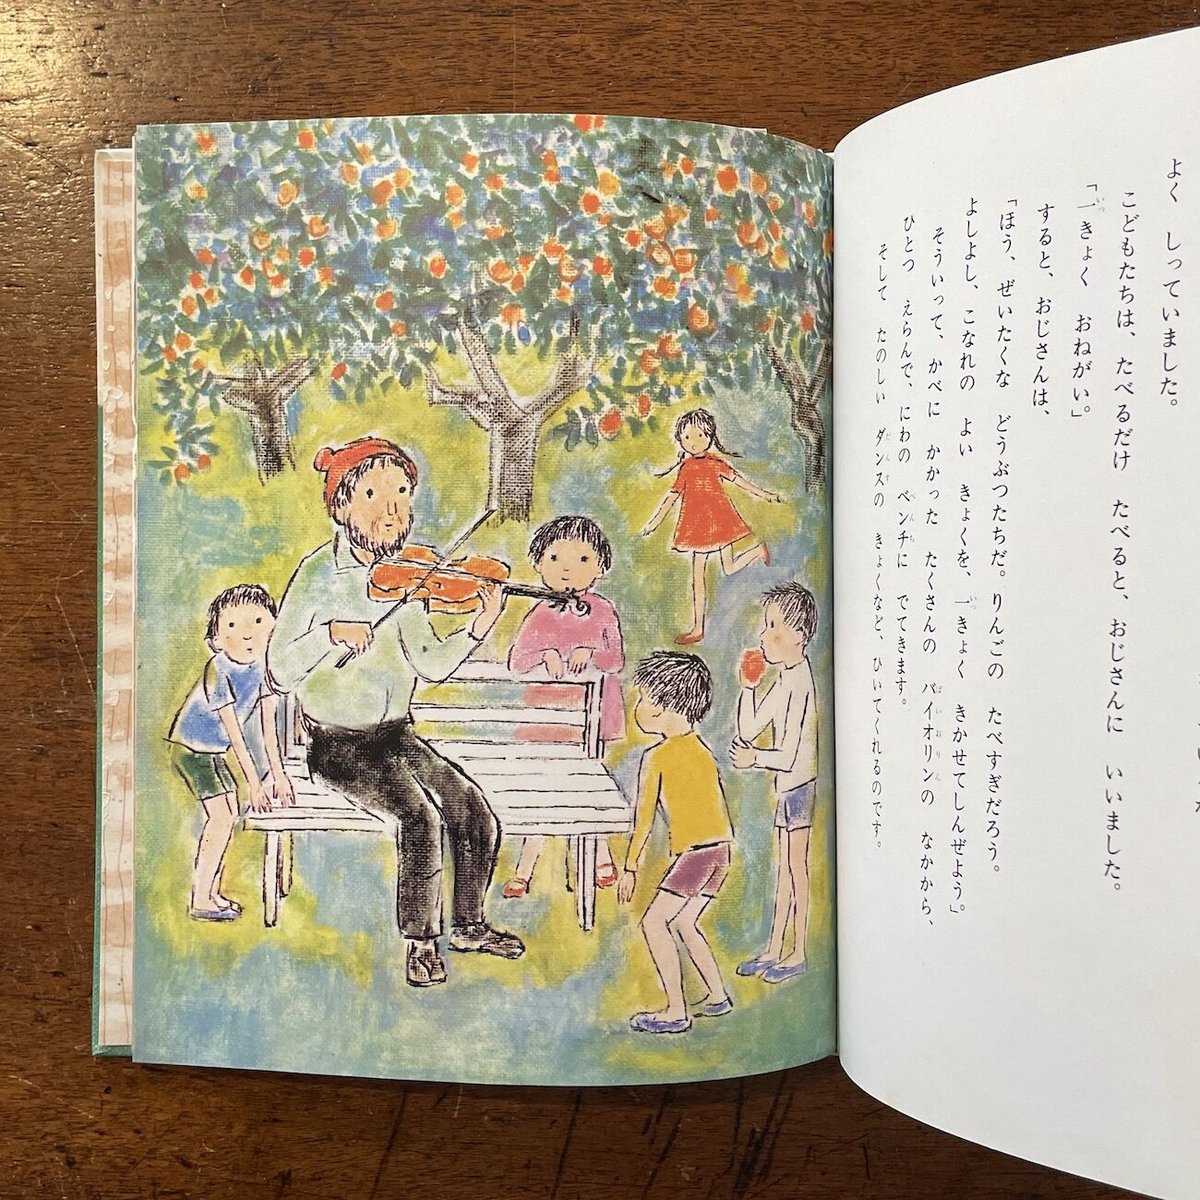 よく しっていました。
こどもたちは、たべるだけ たべると、おじさんに いいました。
「一きょく おねがい」
すると、おじさんは、
「ほう、ぜいたくな どうぶつたちだ。りんごの たべすぎだろう。
よしよし、こなれの よい きょくを、一きょく きかせてしんぜよう」
そういって、かべに かかった たくさんの バイオリンの なかから、
ひとつ えらんで、にわの ベンチに でてきます。
そして たのしい ダンスの きょくなど、ひいてくれるのです。